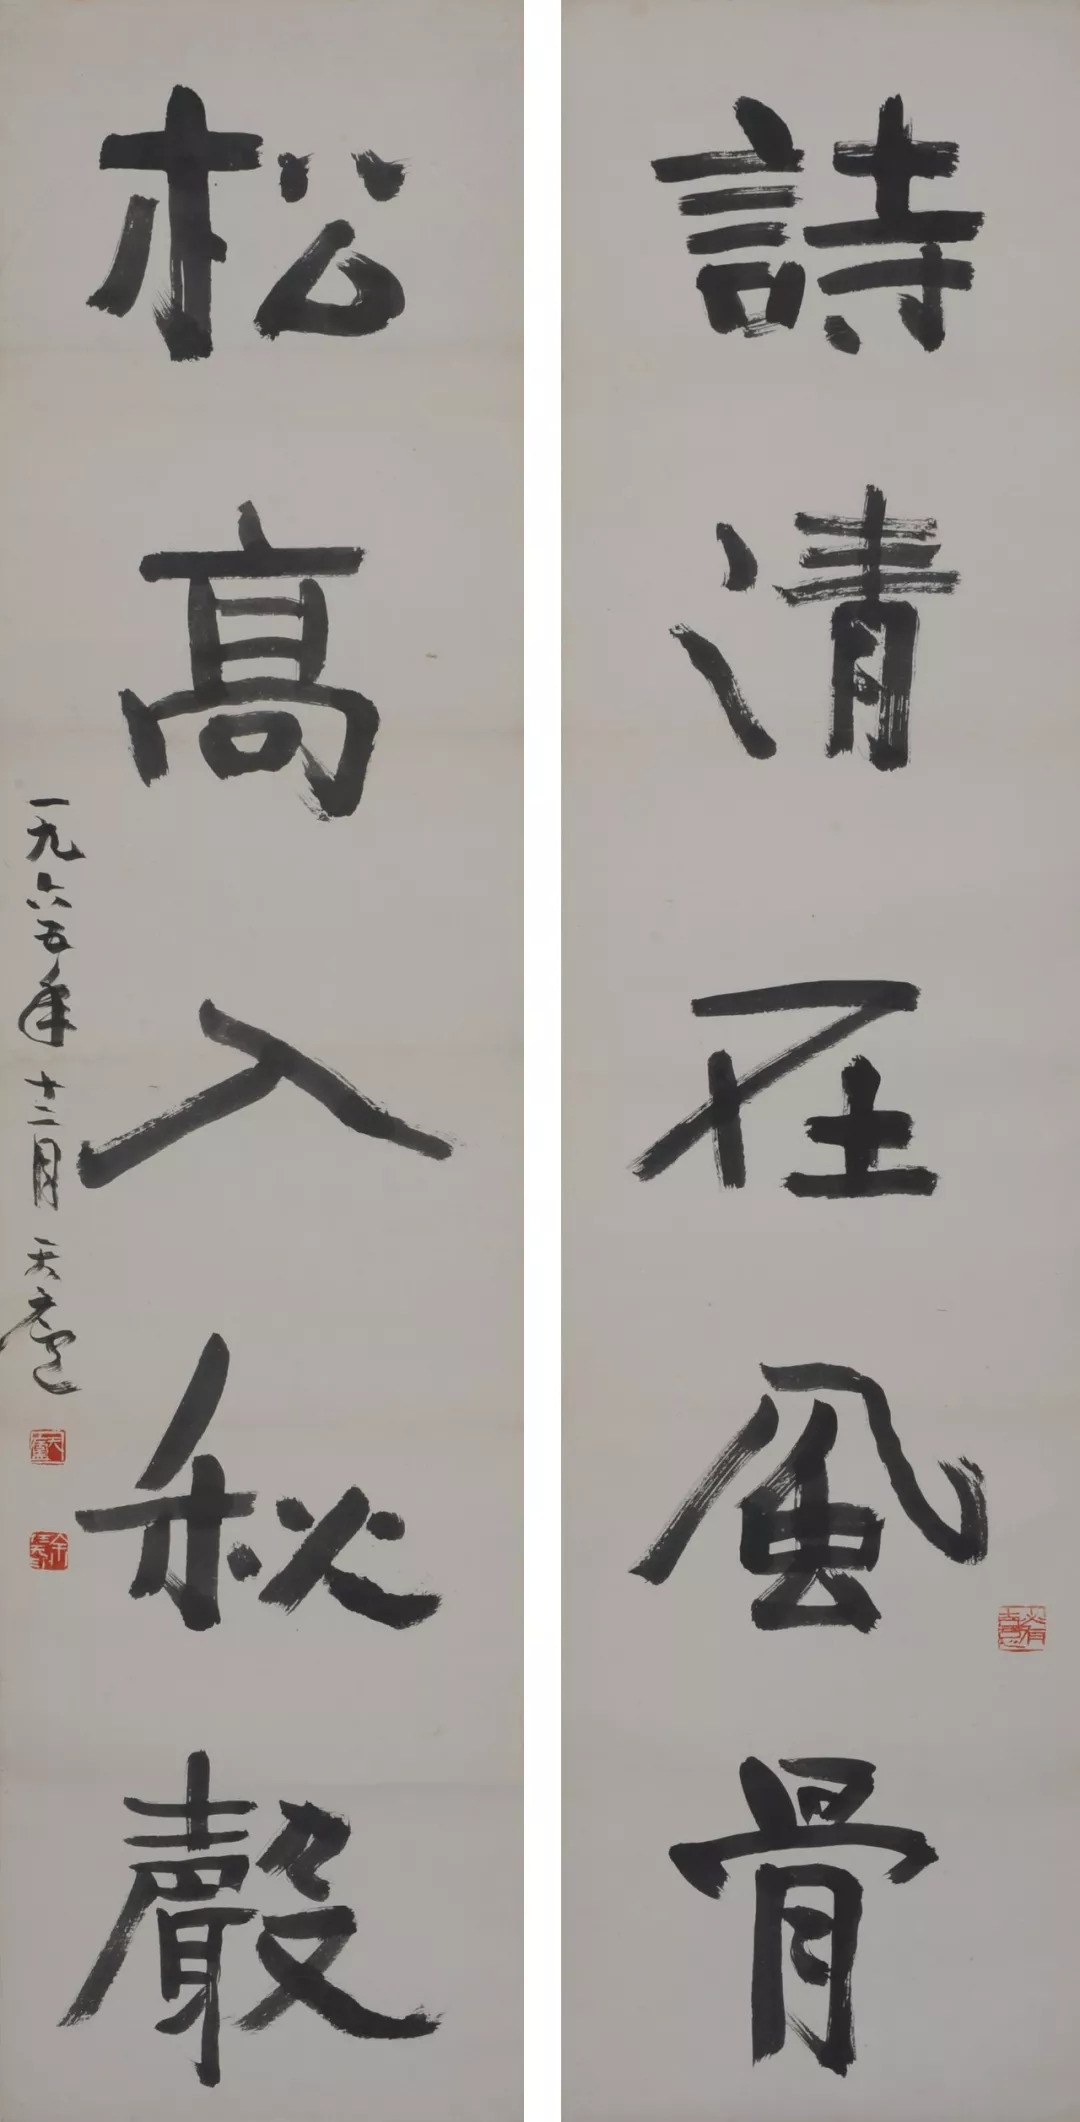 詩清在風骨
松高入秋聲
一九六五年十二月天廬
天廬